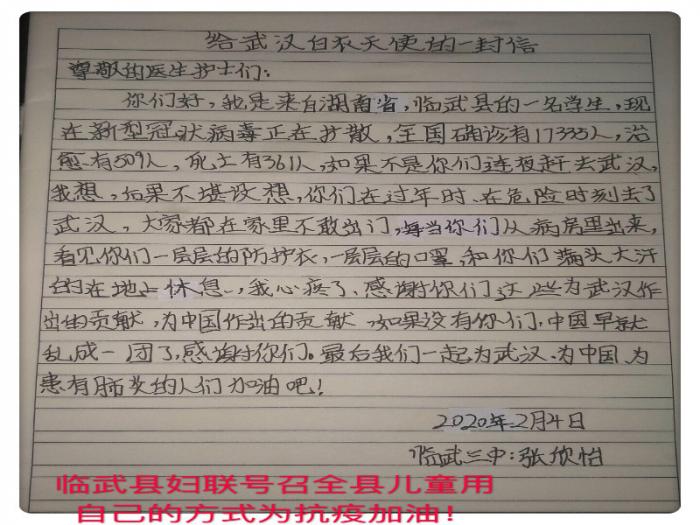 给武汉白衣天使的一封信
尊敬的医生护士们:
你们好,我是来自湖南省,临武县的一名学生,现
在新型冠状病毒正在扩散,全国确诊有17335人,治
愈有509人,死亡有361人,如果不是你们连夜赶去武汉,
我想,后果不堪设想,你们在过年时、在危险时刻去了
武汉,大家都在家里不敢出门,每当你们从病房里出来,
看见你们一层层的防护衣,一层层的口罩,和你们满头大汗
的在地上休息,我心疼了、感谢你们这些为武汉作
出的贡献,为中国作出的贡献,如果没有你们,中国早就
乱成一团了,感谢你们。最后我们一起为武汉、为中国、为
患有肺炎的人们加油吧!
2020年2月4日
临武三中:张欣怡
临武县妇联号召全县儿童用
自己的方式为抗疫加油!